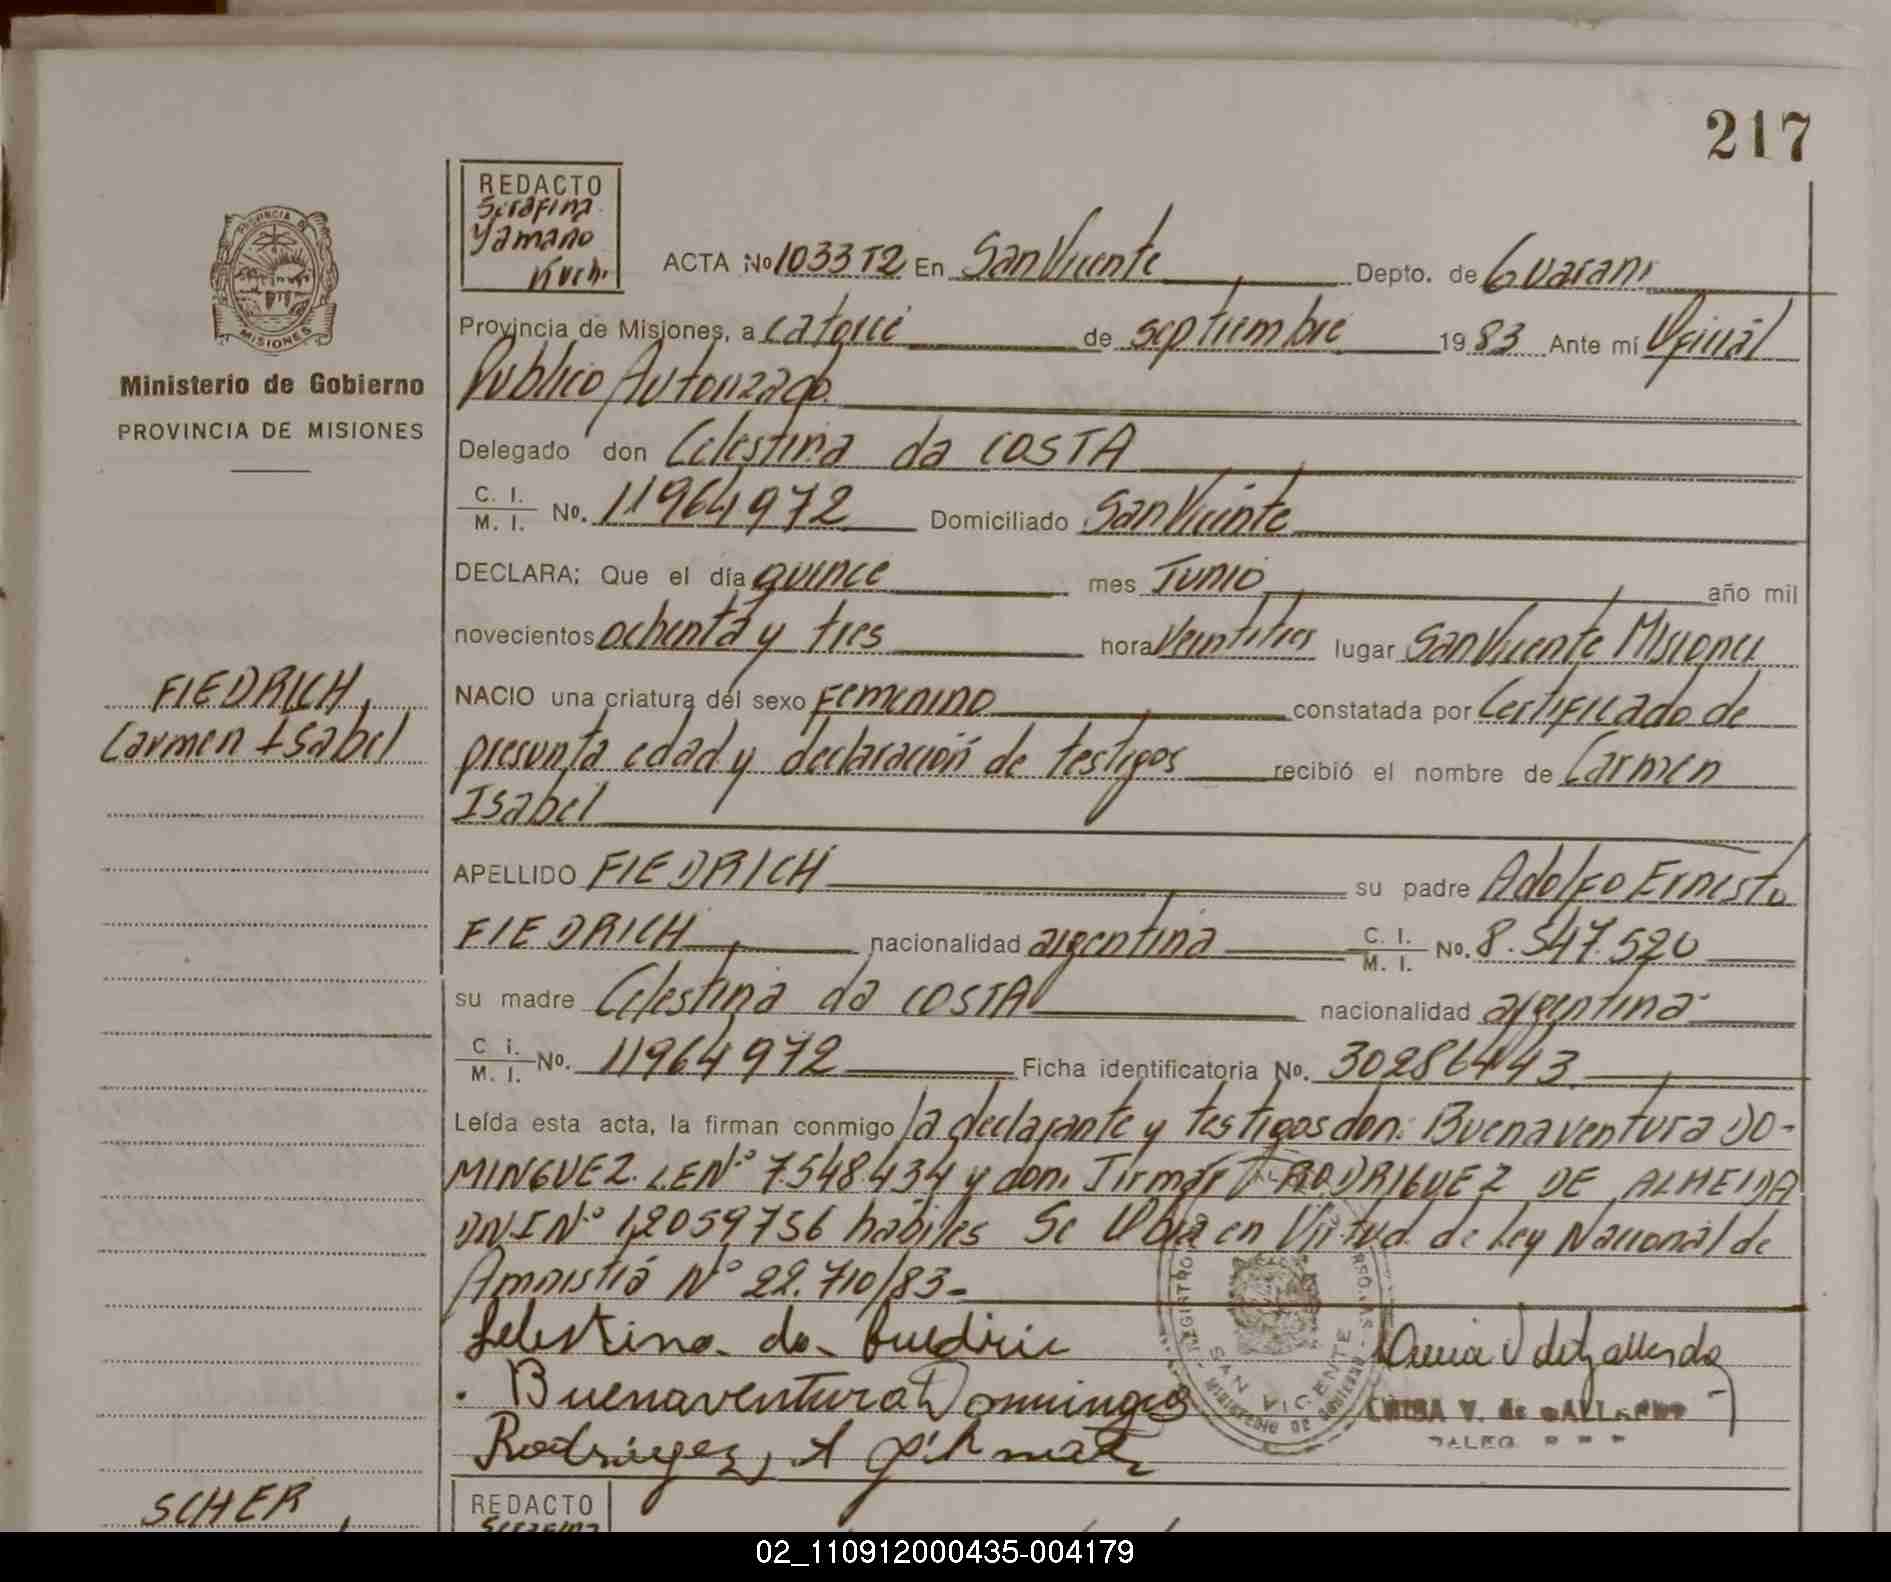 217
REDACTO
Serafina
Yamano
Kuch.
ACTA No 1033 T2 En San Vicente Depto. de Guarani
PROVINCIA DE MISIONES
Provincia de Misiones, a catorce de septiembre 1983 Ante mí Oficial
Publico Autorizado
Ministerio de Gobierno
PROVINCIA DE MISIONES
Delegado don Celestina da COSTA
C. I.
M. I. No. 11964972 Domiciliado San Vicente
DECLARA; Que el día quince mes Junio año mil
novecientos ochenta y tres hora veintitres lugar San Vicente Misiones
FIEDRICH,
Carmen Isabel
NACIO una criatura del sexo Femenino constatada por Certificado de
presunta edad y declaración de testigos recibió el nombre de Carmen
Isabel
APELLIDO FIEDRICH su padre Adolfo Ernesto
FIEDRICH nacionalidad argentina C. I.
M. I. No. 8.547.520
su madre Celestina da COSTA nacionalidad argentina
C i.
M. I. No. 11964972 Ficha identificatoria No. 30286443
Leída esta acta, la firman conmigo la declarante y testigos don: Buenaventura DO-
MINGUEZ. LE Nº 7.548.434 y don. Jirmar RODRIGUEZ DE ALMEIDA
DNI Nº 12059756 habiles Se Labra en Virtud de Ley Nacional de
Amnistia Nº 22.710/83-
Selestina da
Buenaventura Domingues
Rodriguez, A
REGISTRO
SAN VICENTE
MINISTERIO DE GOBIERNO
V. de GALLARDO
SCHER,
REDACTO
Serafina
02_110912000435-004179